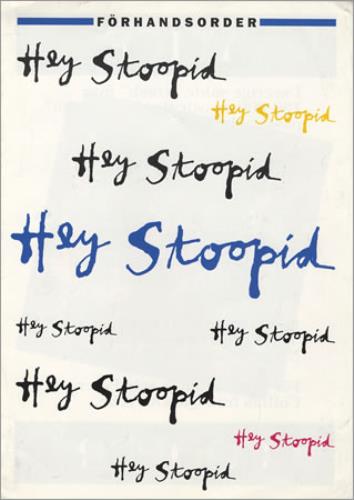 FÖRHANDSORDER
Hey Stoopid
Hey Stoopid
Hey Stoopid
Hey Stoopid
Hey Stoopid
Hey Stoopid
Hey Stoopid
Hey Stoopid
Hey Stoopid